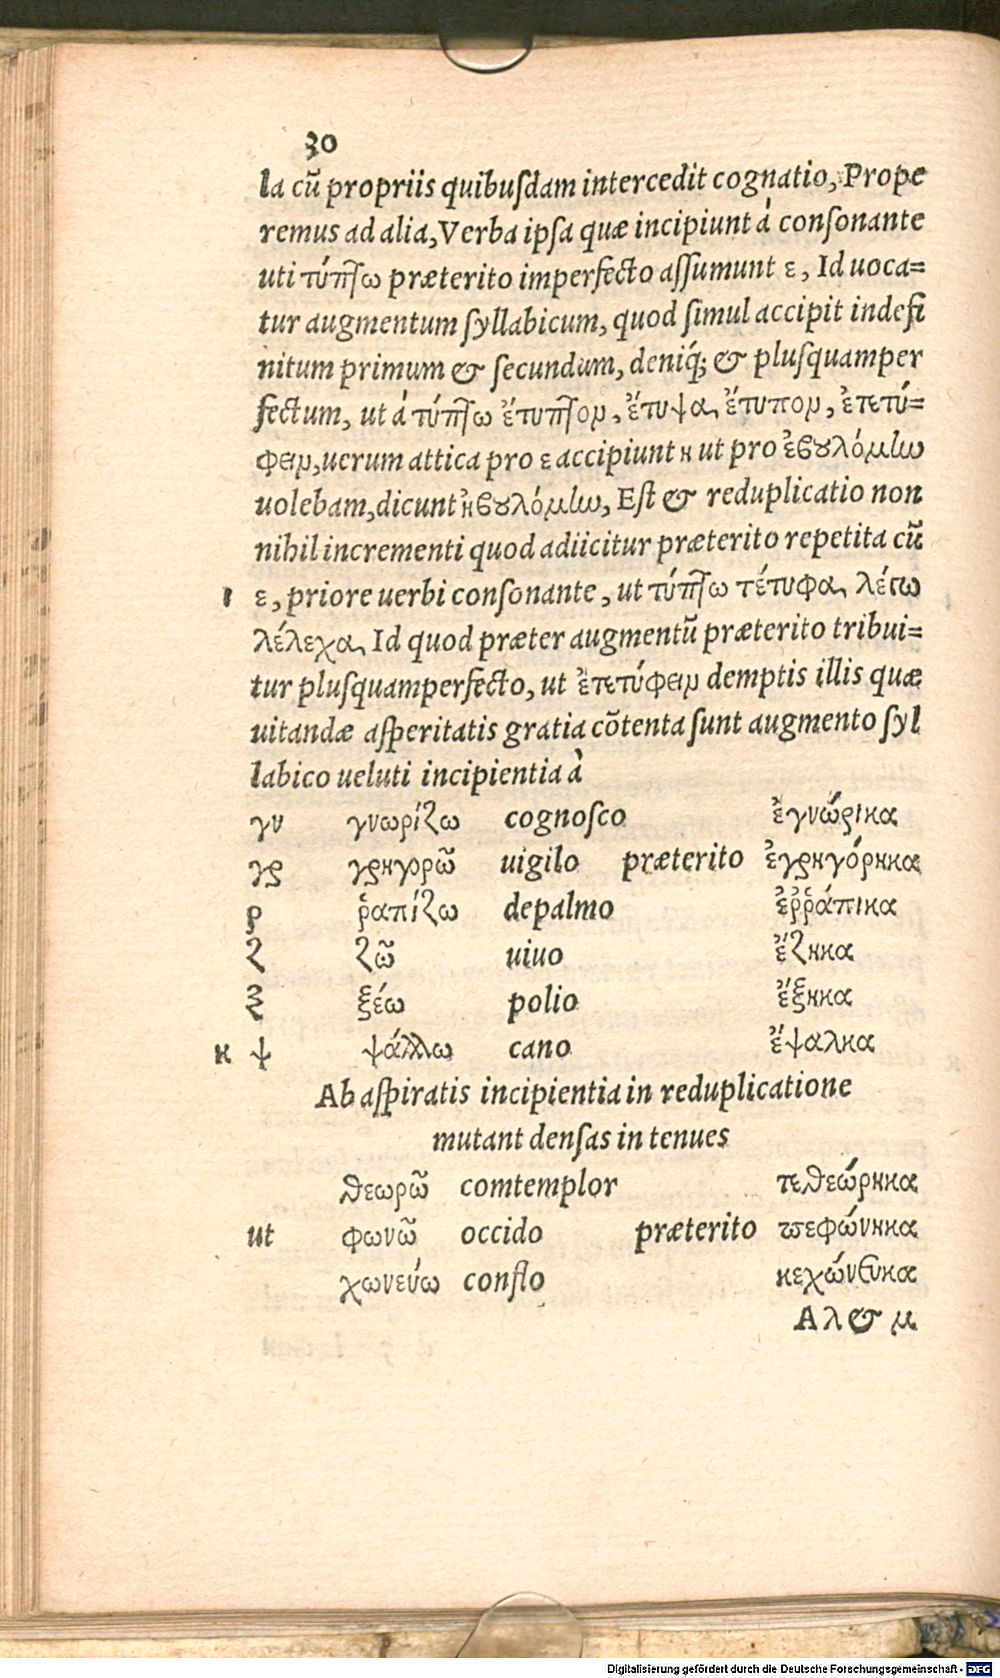 30
la cũ propriis quibuſdam intercedit cognatio, Prope
remus ad alia, Verba ipſa quæ incipiunt à conſonante
uti τύπτω præterito imperfecto aſſumunt ε, Id uoca=
tur augmentum ſyllabicum, quod ſimul accipit indefi
nitum primum & ſecundum, deniq́; & pluſquamper
fectum, ut à τύπτω ἔτυπτον, ἔτυψα, ἔτυπον, ἐτετύ=
φειν, uerum attica pro ε accipiunt η ut pro ἐβουλόμην
uolebam, dicunt ἠβουλόμην, Eſt & reduplicatio non
nihil incrementi quod adiicitur præterito repetita cũ
ι ε, priore uerbi conſonante, ut τύπτω τέτυφα, λέγω
λέλεχα, Id quod præter augmentũ præterito tribui=
tur pluſquamperfecto, ut ἐτετύφειν demptis illis quæ
uitandæ aſperitatis gratia cõtenta ſunt augmento ſyl
labico ueluti incipientia à
γν γνωρίζω cognoſco ἐγνώρικα
γρ γρηγορῶ uigilo præterito ἐγρηγόρηκα
ρ ῥαπίζω depalmo ἐῤῥάπικα
ζ ζῶ uiuo ἔζηκα
ξ ξέω polio ἔξηκα
κ ψ ψάλλω cano ἔψαλκα
Ab aſpiratis incipientia in reduplicatione
mutant denſas in tenues
θεωρῶ comtemplor τεθεώρηκα
ut φωνῶ occido præterito πεφώνηκα
χωνεύω conflo κεχώνευκα
A λ & μ
Digitalisierung gefördert durch die Deutsche Forschungsgemeinschaft - DFG